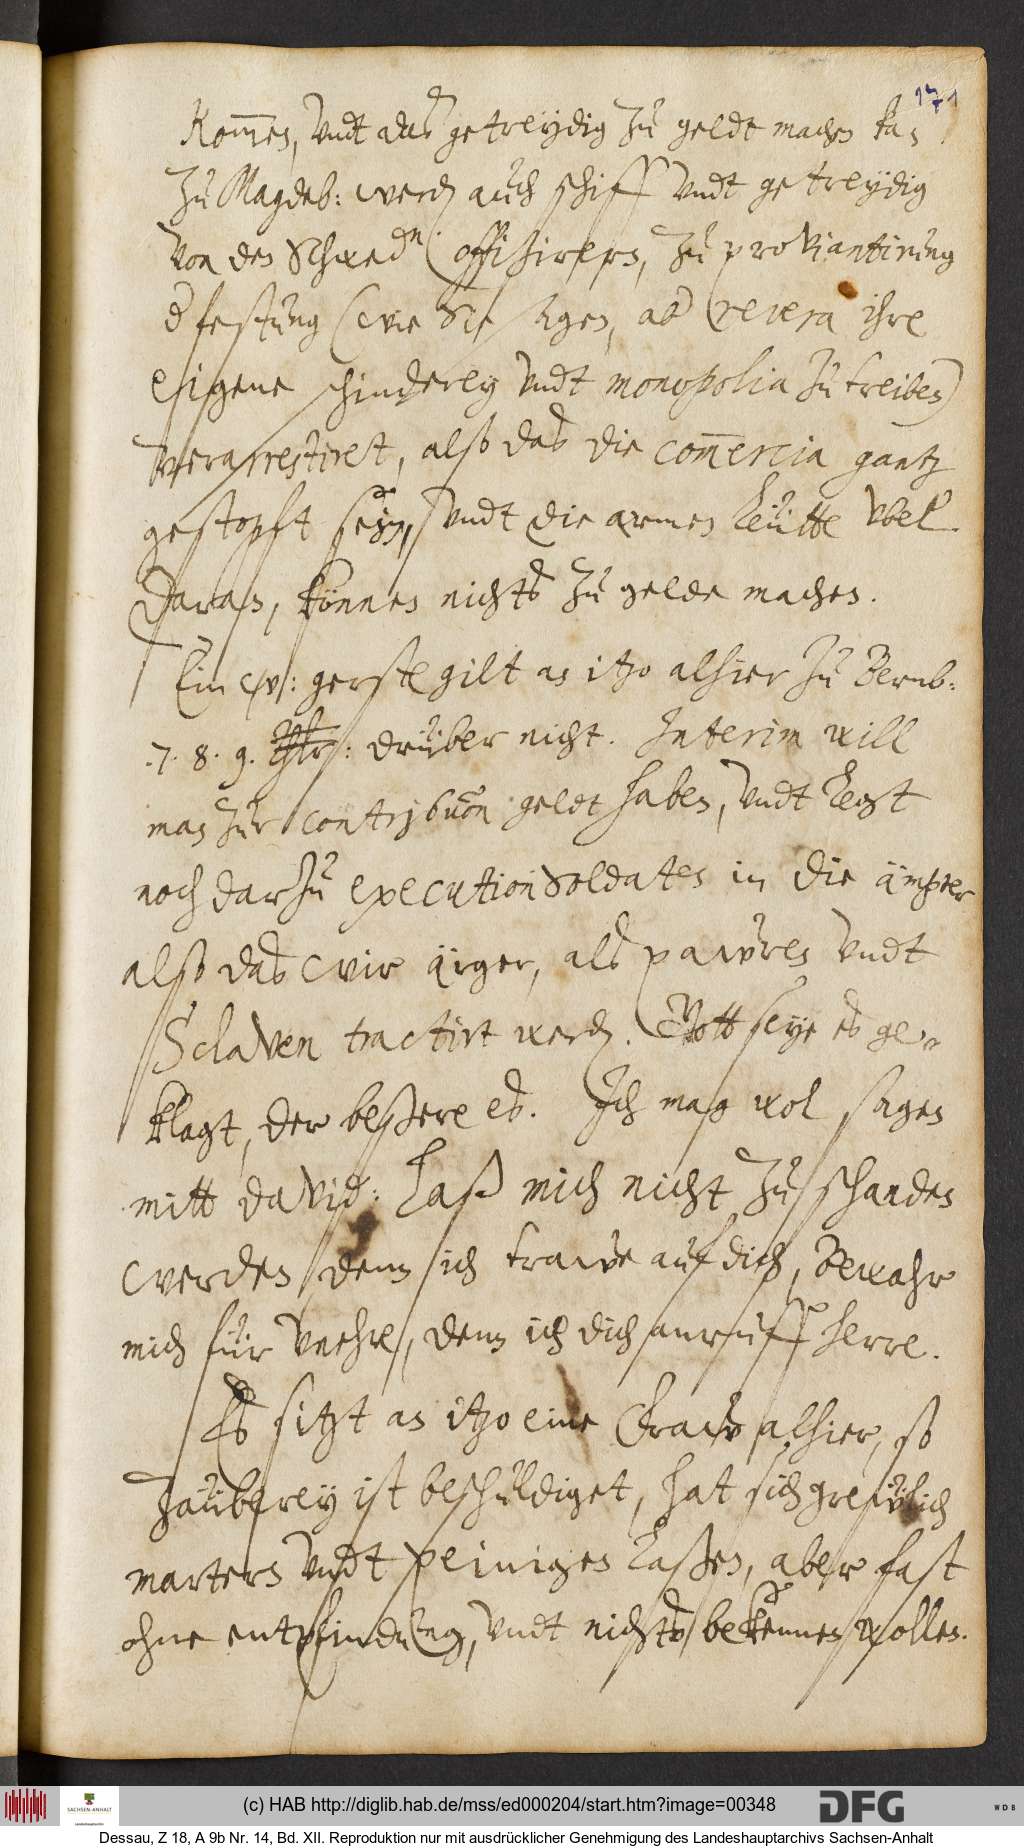 171
Kom̅en, vndt das getreydig zu geldt machen kan
zu Magdeb: werd auch schiff vndt getreydig
von den Schwedn. offizirern, zu proviantirung
d festung (wie Sie sagen, ab revera ihre
eigene schinderey vndt monopolia zu treiben)
verarrestiret, also das die com̅ercia gantz
gestopft seyn, vndt die armen Leütte vbel
daran, können nichts zu gelde machen.
Ein wp: gerste gilt an itzo alhier zu Bernb:
.7. 8. 9. Thlr: drüber nicht. Interim will
man zur contribuon geldt haben, vndt legt
noch darzu executionSoldaten in die ämpter
also das wir ärger, als pawren vndt
Sclaven tractirt werd. Gott seye es ge-
klagt, der beßere es. Ich mag wol sagen
mitt david: Laß mich nicht zu schanden
werden denn ich trawe auf dich, Bewahr
mich für vnehre, denn ich dich anruff herre.
Es sitzt an itzo eine Fraw alhier, so
Zauberey ist beschuldiget, hat sich grewlich
martern vndt peinigen laßen, aber fast
ohne entpfindung, vndt nichts bekennen wollen.
(c) HAB http://diglib.hab.de/mss/ed000204/start.htm?image=00348
SACHSEN-ANHALT
DFG
WDB
Dessau, Z 18, A 9b Nr. 14, Bd. XII. Reproduktion nur mit ausdrücklicher Genehmigung des Landeshauptarchivs Sachsen-Anhalt